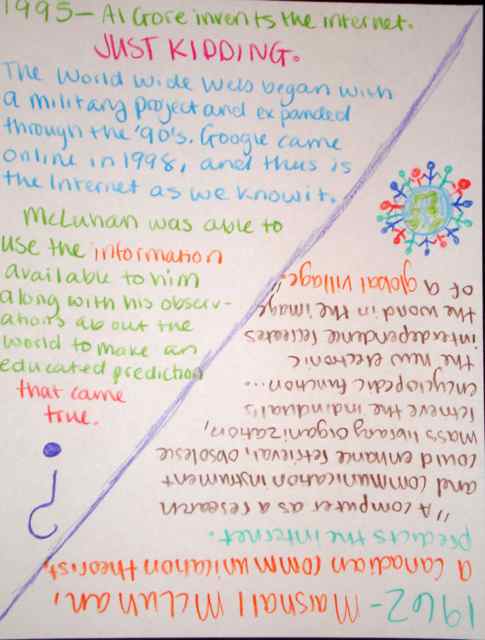 1995 - Al Gore invents the internet.
JUST KIDDING.
The World Wide Web began with
a military project and expanded
through the '90's. Google came
online in 1998, and thus is
the Internet as we know it.
McLuhan was able to
use the information
available to him
along with his observ-
ations about the
world to make an
educated prediction
that came
true.
?
1962 - Marshall McLuhan,
a Canadian communication theorist,
predicts the internet.
"A computer as a research
and communication instrument
could enhance retrieval, obsolesce
mass library organization,
retrieve the individual's
encyclopedic function...
the new electronic
interdependence recreates
the world in the image
of a global village."